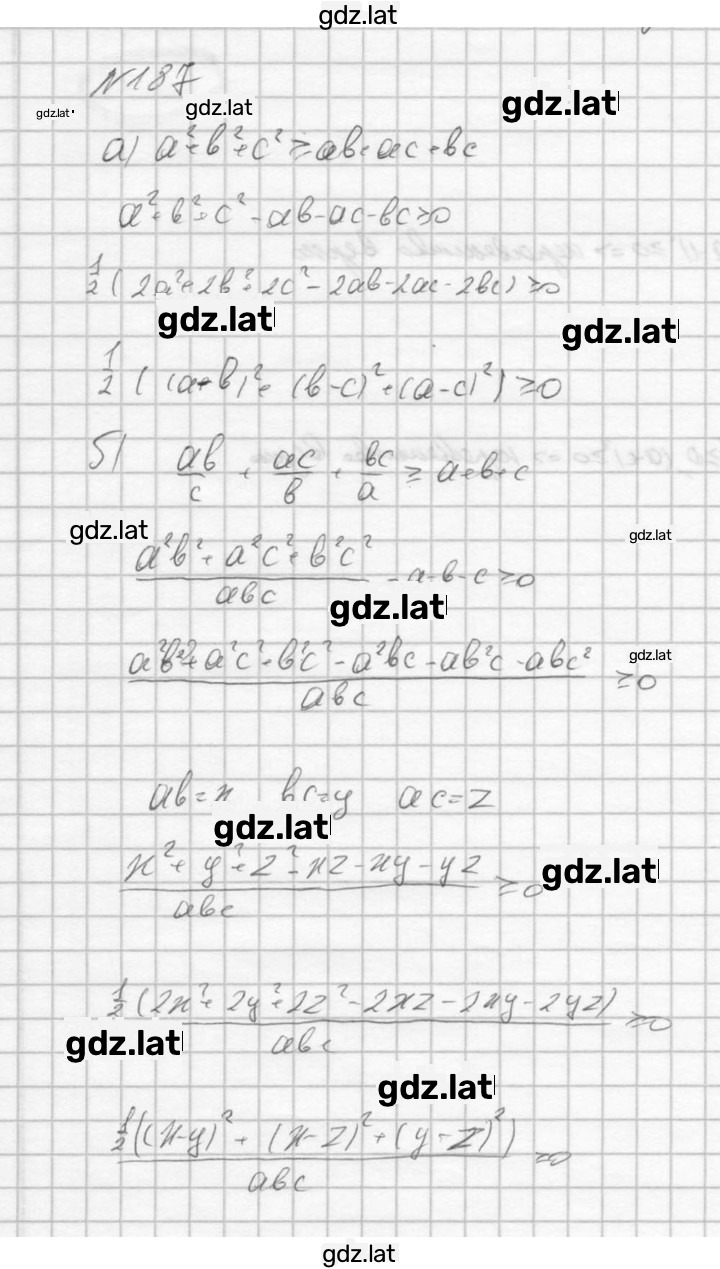 gdz.lat
№187
gdz.lat gdz.lat gdz.lat
а) a²+b²+c² ≥ ab+ac+bc
a²+b²+c²-ab-ac-bc≥0
1/2 (2a²+2b²+2c²-2ab-2ac-2bc) ≥0
gdz.lat gdz.lat
1/2 ((a-b)²+(b-c)²+(a-c)²) ≥0
б) ab/c + ac/b + bc/a ≥ a+b+c
gdz.lat gdz.lat
(a²b²+a²c²+b²c²)/abc -a-b-c≥0
gdz.lat
(a²b²+a²c²+b²c²-a²bc-ab²c-abc²)/abc ≥0
gdz.lat
ab=x bc=y ac=z
gdz.lat
(x²+y²+z²-xz-xy-yz)/abc ≥0
gdz.lat
1/2 (2x²+2y²+2z²-2xz-2xy-2yz)/abc ≥0
gdz.lat
gdz.lat
1/2((x-y)²+(x-z)²+(y-z)²)/abc ≥0
gdz.lat